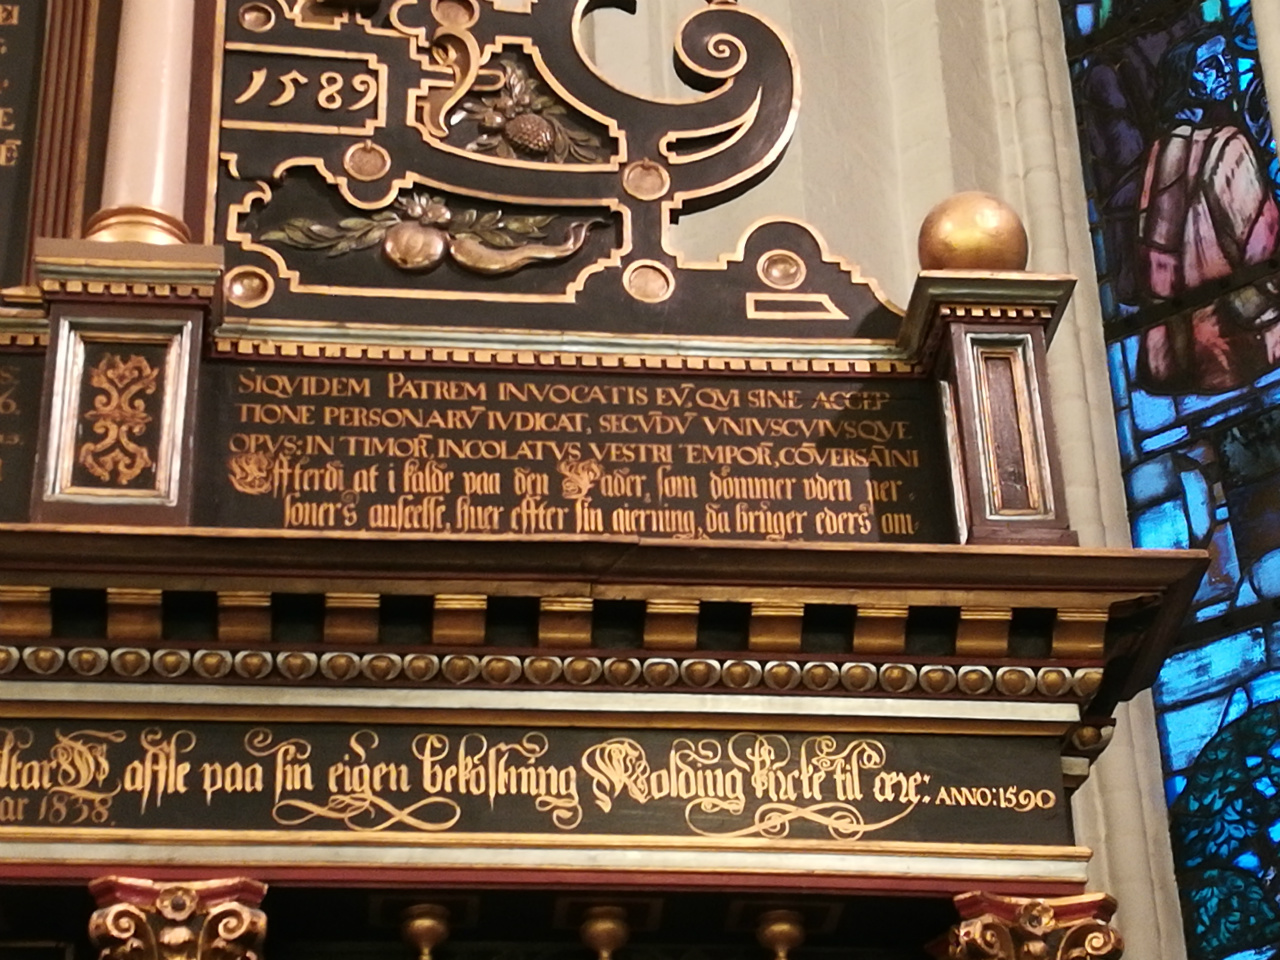 1589
SIQVIDEM PATREM INVOCATIS EV̄, QVI SINE ACCEP
TIONE PERSONARV̄ IVDICAT, SECV̄DV̄ VNIVSCVIVSQVE
OPVS: IN TIMOR̄ INCOLATVS VESTRI TEMPOR̄, CŌVERSAĪNI
Efterdi at i kalde paa den Fader, som dömmer vden per
soners anseelse, huer effter sin gierning, da bruger eders om
ltar Da aff le paa sin eigen bekostning Kolding Kircke til ære: ANNO: 1590
ar 1838.